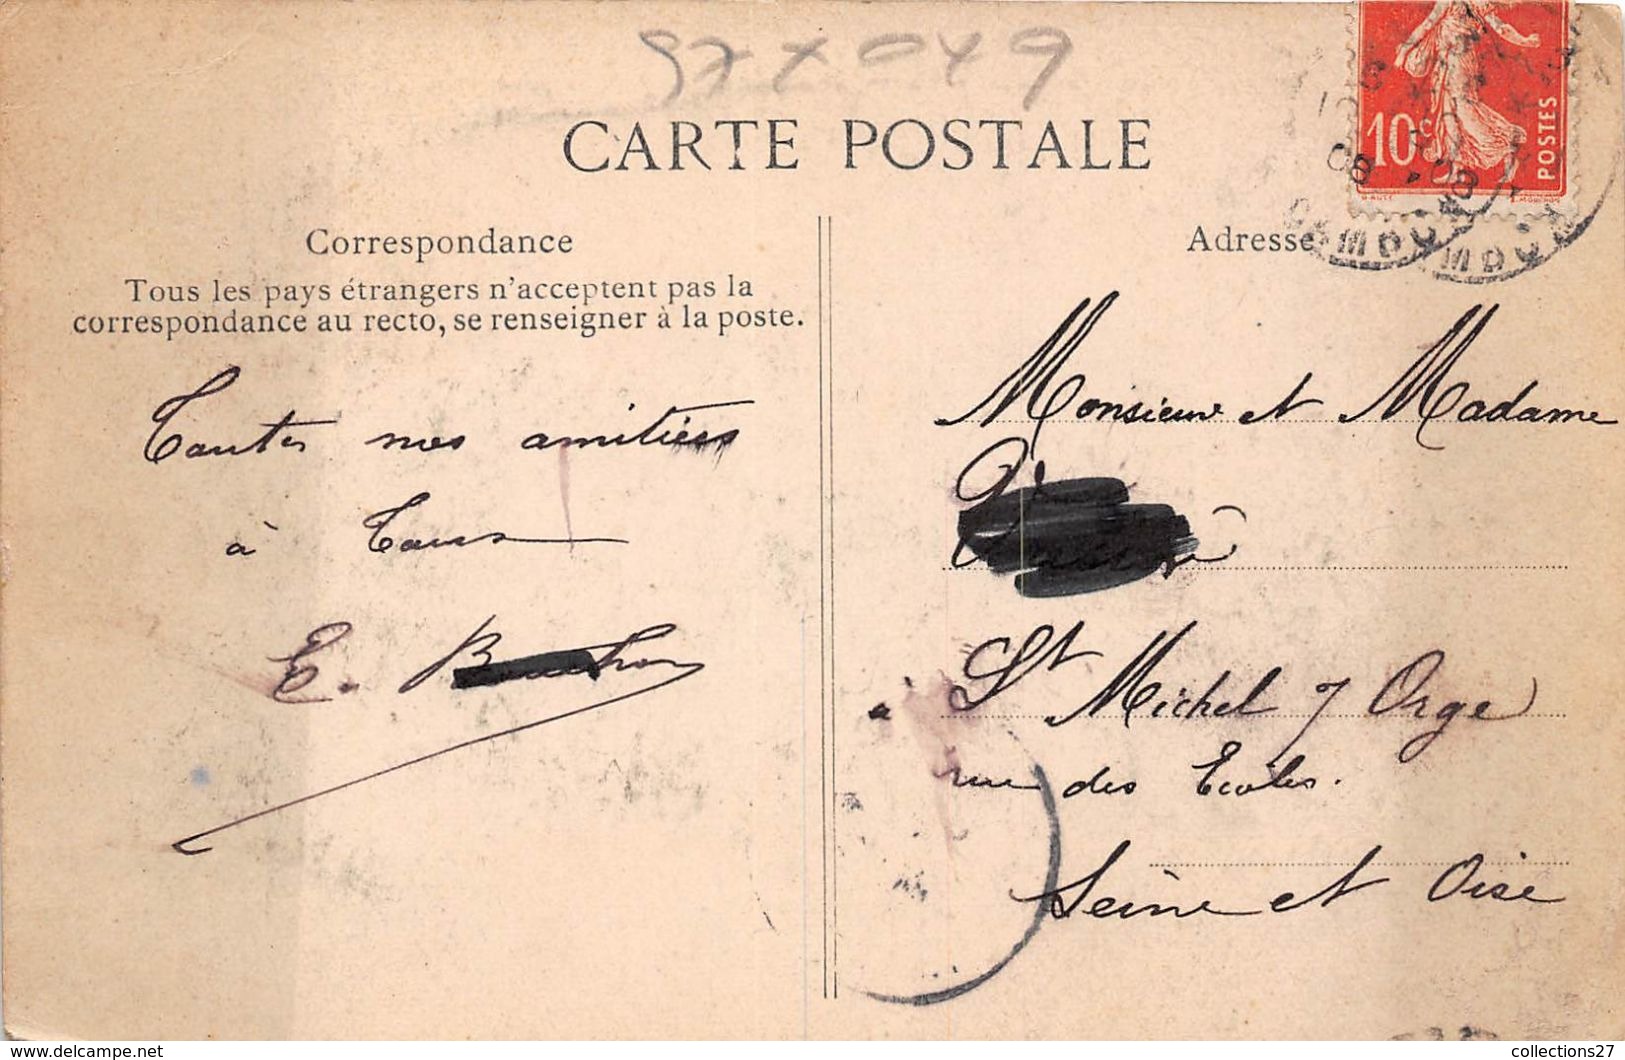 97 x 049
CARTE POSTALE
10c
POSTES
08
Correspondance
Tous les pays étrangers n'acceptent pas la
correspondance au recto, se renseigner à la poste.
Toutes nos amitiées
à Tous
E.
Adresse
Monsieur et Madame
à St Michel s/ Orge
rue des Ecoles.
Seine et Oise
collections27